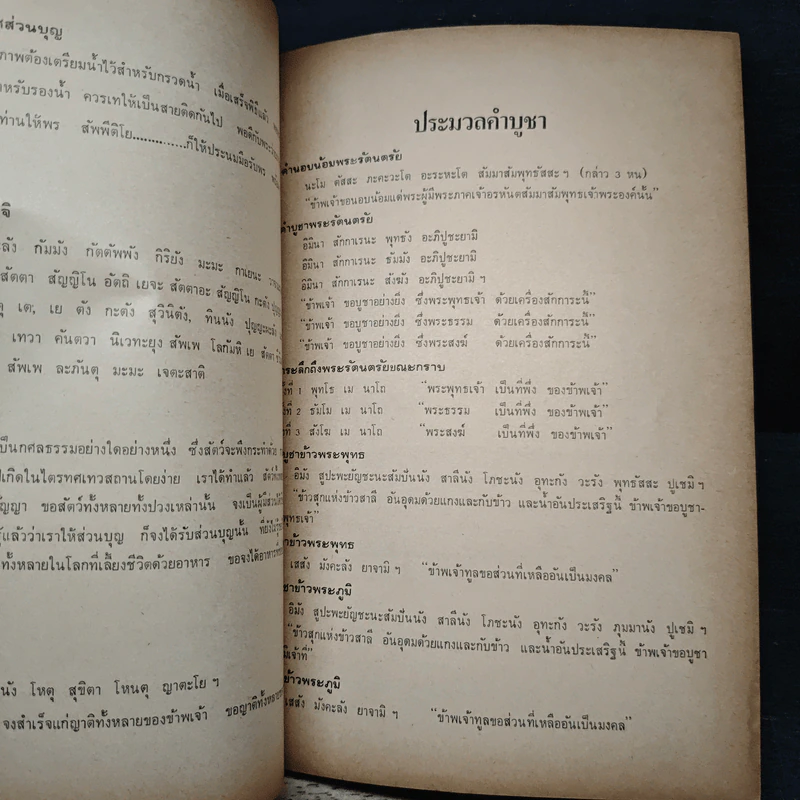 ส่วนบุญ
ภาพต้องเตรียมน้ำไว้สำหรับกรวดน้ำ เมื่อเสร็จพิธีแล้ว
หรับรองน้ำ ควรเทให้เป็นสายติดกันไป พอดีกับพระ
ท่านให้พร สัพพีติโย............ก็ให้ประนมมือรับพร
จิ
ะลัง กัมมัง กัตตัพพัง กิริยัง มะมะ กาเยนะ
สัตตา สัญญิโน อัตถิ เยจะ สัตตาอะ สัญญิโน กะตัง
ตุ เต, เย ตัง กะตัง สุวินิตัง, ทินนัง ปุญญะผะลัง
เทวา คันตวา นิเวทะยุง สัพเพ โลกัมหิ เย สัตตา
สัพเพ ละภันตุ มะมะ เจตะสาติ
เป็นกุศลธรรมอย่างใดอย่างหนึ่ง ซึ่งสัตว์จะพึงกระทำด้วย
ไปเกิดในไตรทศเทวสถานโดยง่าย เราได้ทำแล้ว
ัญญา ขอสัตว์ทั้งหลายทั้งปวงเหล่านั้น จงเป็นผู้มีส่วนได้
รู้แล้วว่าเราให้ส่วนบุญ ก็จงได้รับส่วนบุญนั้น
ทั้งหลายในโลกที่เลี้ยงชีวิตด้วยอาหาร ขอจงได้อาหาร
นัง โหตุ สุขิตา โหนตุ ญาตะโย ฯ
จงสำเร็จแก่ญาติทั้งหลายของข้าพเจ้า ขอญาติทั้งหลาย
ประมวลคำบูชา
คำนอบน้อมพระรัตนตรัย
นะโม ตัสสะ ภะคะวะโต อะระหะโต สัมมาสัมพุทธัสสะ ฯ (กล่าว 3 หน)
“ข้าพเจ้าขอนอบน้อมแด่พระผู้มีพระภาคเจ้าอรหันตสัมมาสัมพุทธเจ้าพระองค์นั้น”
คำบูชาพระรัตนตรัย
อิมินา สักกาเรนะ พุทธัง อะภิปูชะยามิ
อิมินา สักกาเรนะ ธัมมัง อะภิปูชะยามิ
อิมินา สักกาเรนะ สังฆัง อะภิปูชะยามิ ฯ
“ข้าพเจ้า ขอบูชาอย่างยิ่ง ซึ่งพระพุทธเจ้า ด้วยเครื่องสักการะนี้”
“ข้าพเจ้า ขอบูชาอย่างยิ่ง ซึ่งพระธรรม ด้วยเครื่องสักการะนี้”
“ข้าพเจ้า ขอบูชาอย่างยิ่ง ซึ่งพระสงฆ์ ด้วยเครื่องสักการะนี้”
ระลึกถึงพระรัตนตรัยขณะกราบ
ครั้งที่ 1 พุทโธ เม นาโถ “พระพุทธเจ้า เป็นที่พึ่ง ของข้าพเจ้า”
ครั้งที่ 2 ธัมโม เม นาโถ “พระธรรม เป็นที่พึ่ง ของข้าพเจ้า”
ครั้งที่ 3 สังโฆ เม นาโถ “พระสงฆ์ เป็นที่พึ่ง ของข้าพเจ้า”
บูชาข้าวพระพุทธ
อิมัง สูปะพะยัญชะนะสัมปันนัง สาลีนัง โภชะนัง อุทะกัง วะรัง พุทธัสสะ ปูเชมิ ฯ
“ข้าวสุกแห่งข้าวสาลี อันอุดมด้วยแกงและกับข้าว และน้ำอันประเสริฐนี้ ข้าพเจ้าขอบูชา-
พุทธเจ้า”
าข้าวพระพุทธ
เสสัง มังคะลัง ยาจามิ ฯ “ข้าพเจ้าทูลขอส่วนที่เหลืออันเป็นมงคล”
ชาข้าวพระภูมิ
อิมัง สูปะพะยัญชะนะสัมปันนัง สาลีนัง โภชะนัง อุทะกัง วะรัง ภุมมานัง ปูเชมิ ฯ
“ข้าวสุกแห่งข้าวสาลี อันอุดมด้วยแกงและกับข้าว และน้ำอันประเสริฐนี้ ข้าพเจ้าขอบูชา
มิเจ้าที่”
ข้าวพระภูมิ
เสสัง มังคะลัง ยาจามิ ฯ “ข้าพเจ้าทูลขอส่วนที่เหลืออันเป็นมงคล”